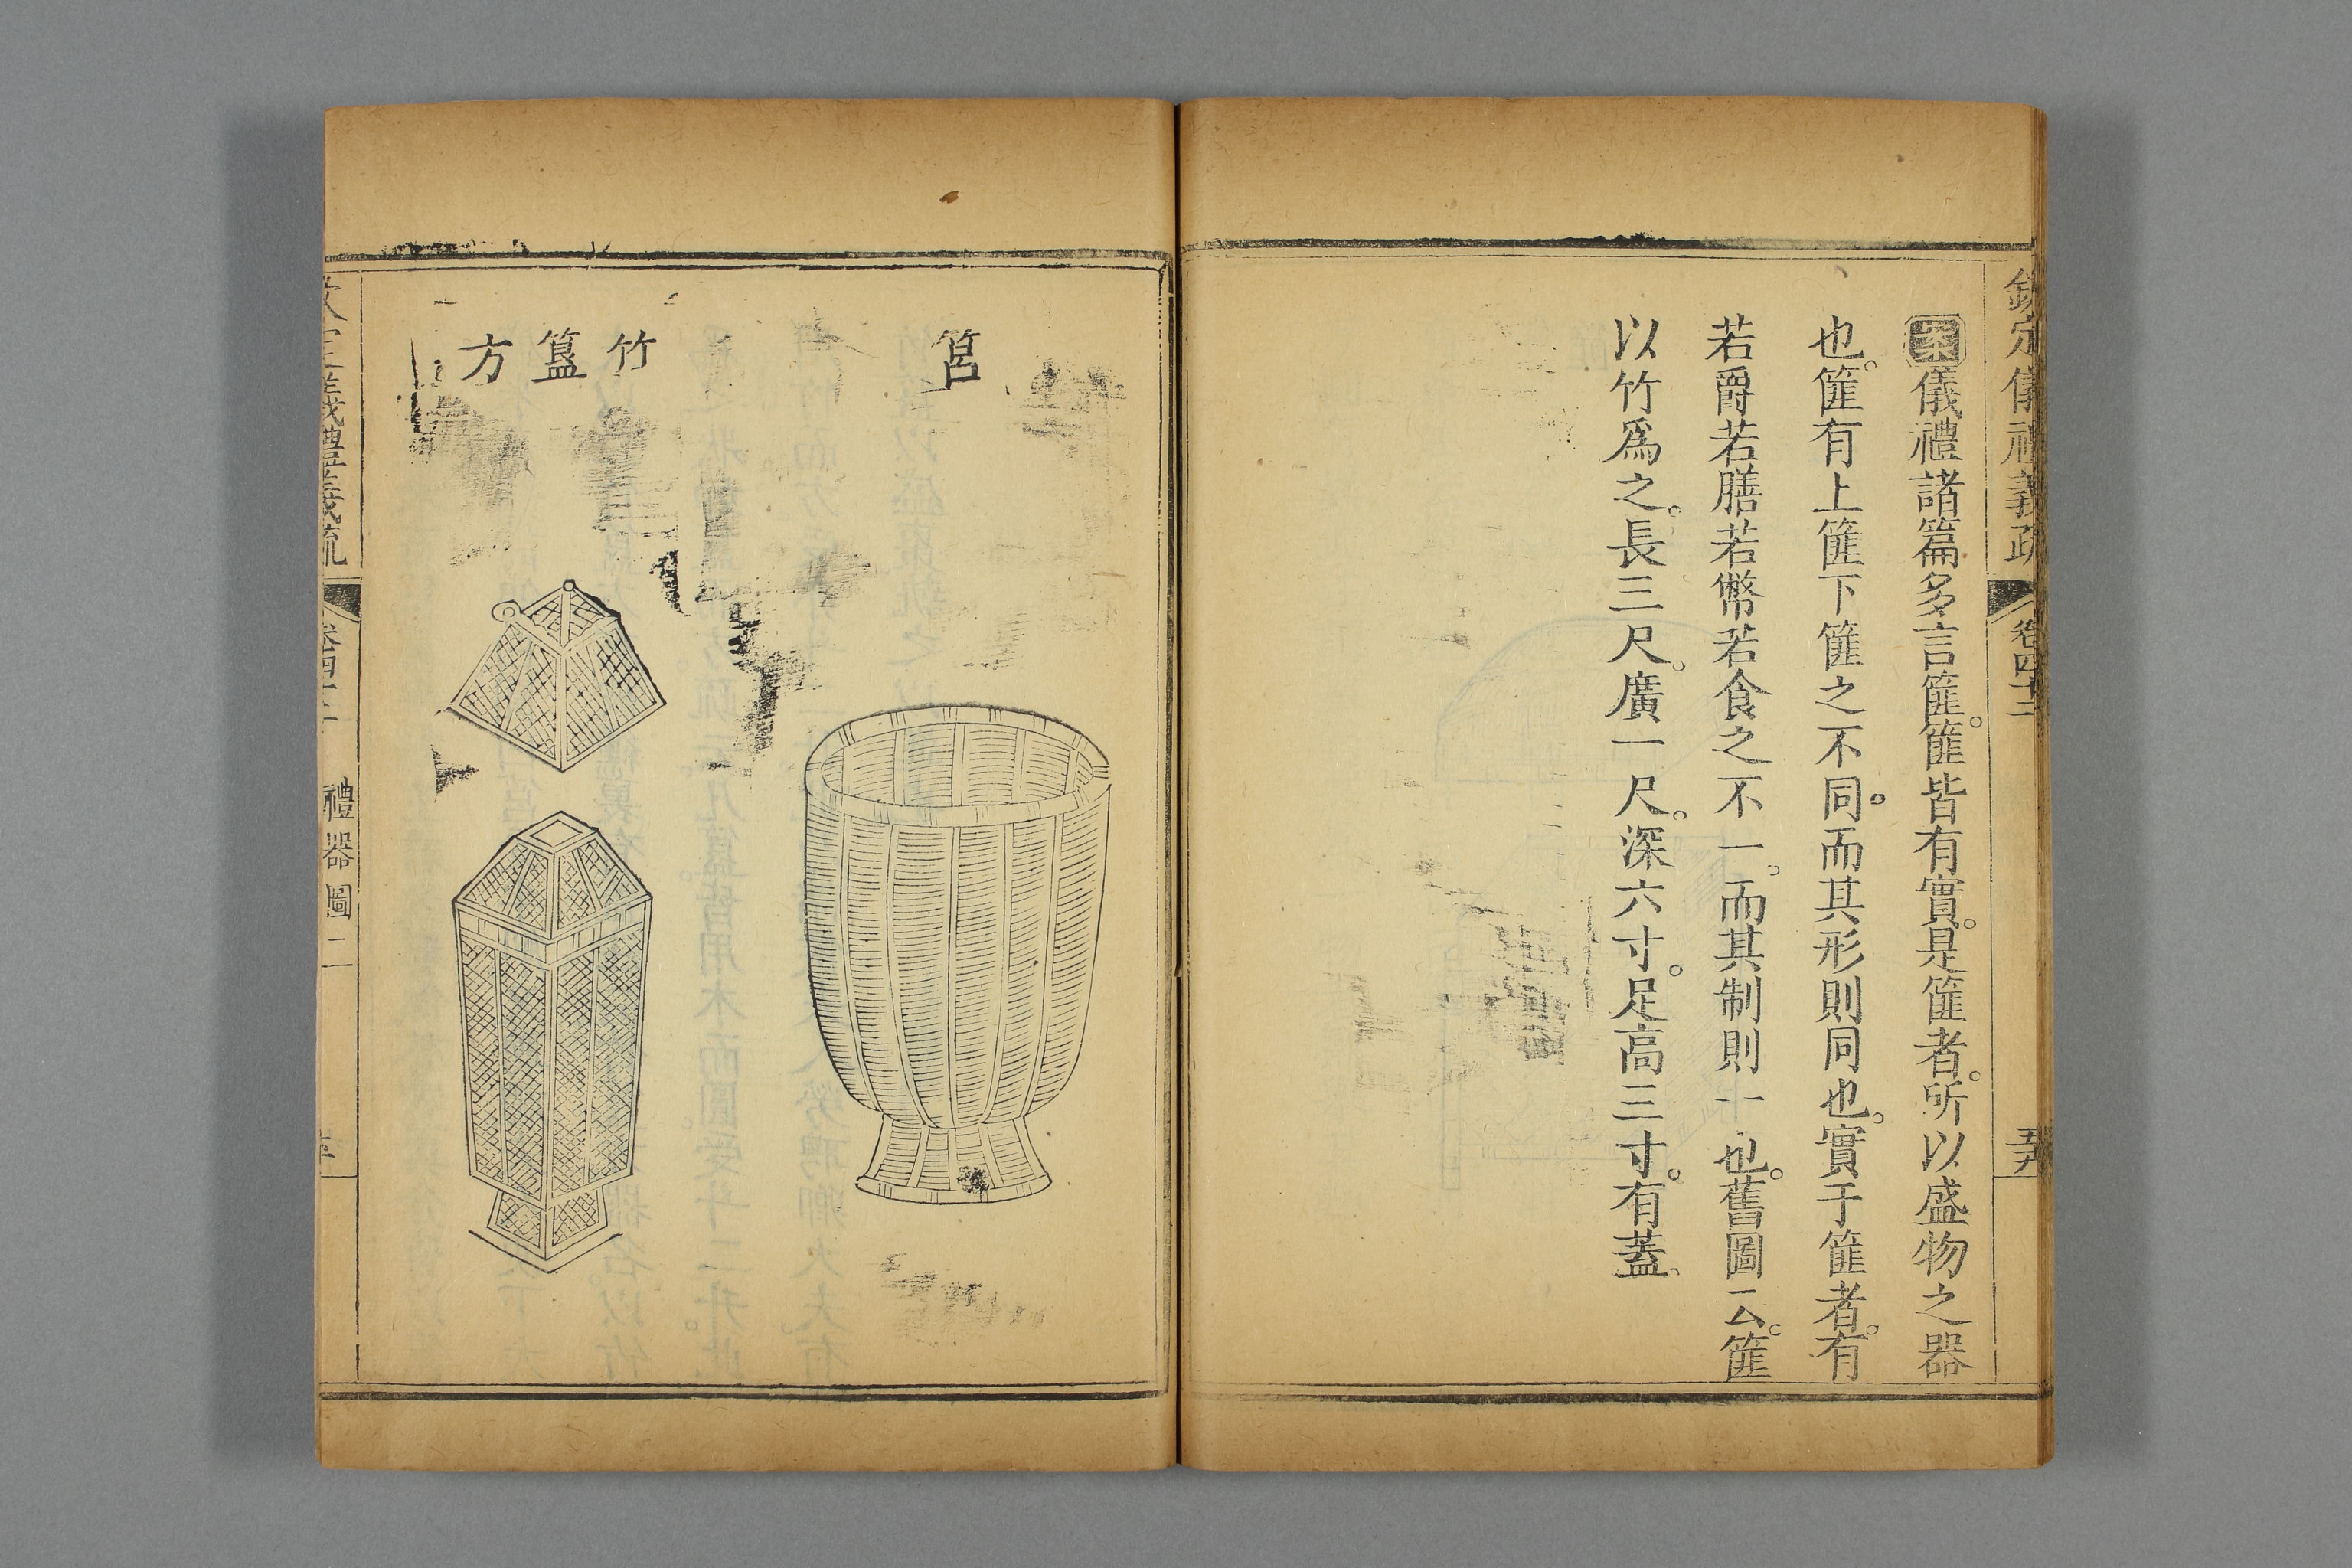 欽定儀禮義疏 卷四十三 五九
案儀禮諸篇多言篚。篚皆有實。是篚者。所以盛物之器
也。篚有上篚下篚之不同。而其形則同也。實于篚者。有
若爵若膳若幣若食之不一。而其制則一也。舊圖云。篚
以竹爲之。長三尺。廣一尺。深六寸。足高三寸。有蓋。
筥
竹簋方
欽定儀禮義疏 卷四十三 禮器圖二